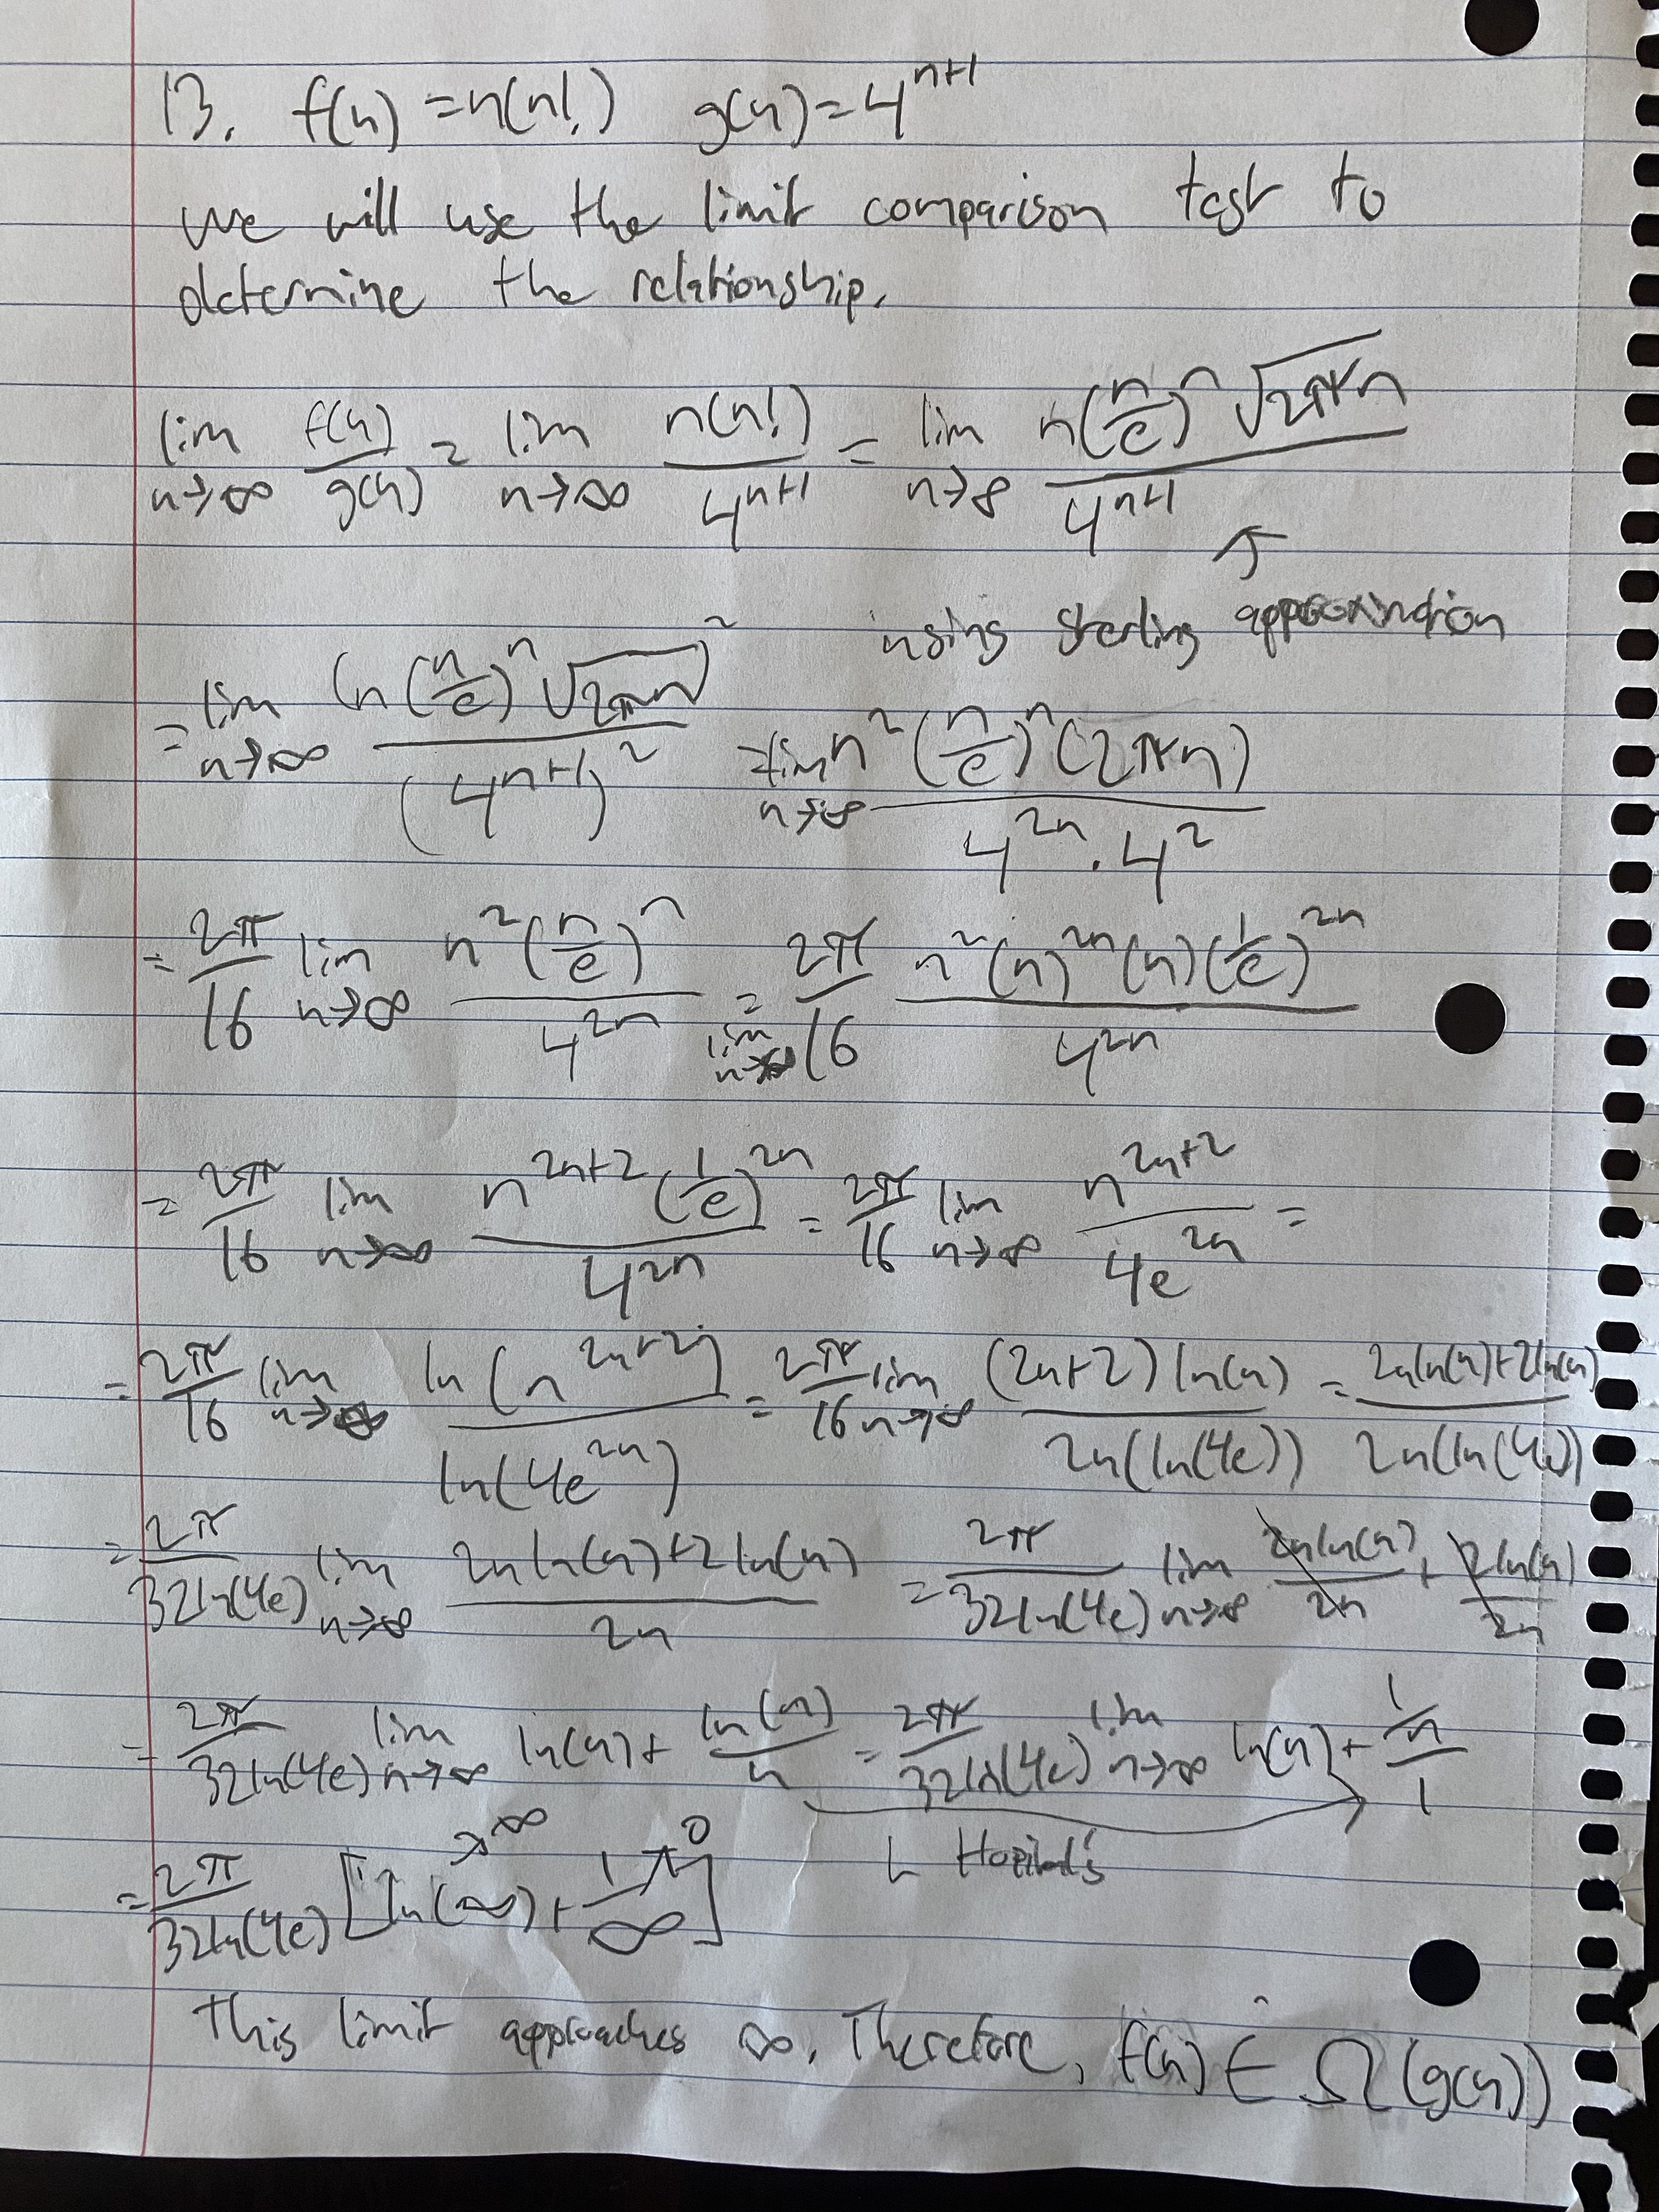 13. f(n) = n(n!) g(n) = 4^{n+1}
we will use the limit comparison test to
determine the relationship.
lim_{n→∞} f(n)/g(n) = lim_{n→∞} n(n!)/4^{n+1} = lim_{n→∞} n(n/e)^n √(2πn) / 4^{n+1}
↑
using sterling approximation
= lim_{n→∞} (n(n/e)^n √(2πn))^2 / (4^{n+1})^2 = lim_{n→∞} n^2 (n/e)^n (2πn) / 4^{2n} · 4^2
= 2π/16 lim_{n→∞} n^2 (n/e)^n / 4^{2n} = lim_{n→∞} 2π/16 n^2 (n)^{2n} (n) (1/e)^{2n} / 4^{2n}
= 2π/16 lim_{n→∞} n^{2n+2} (1/e)^{2n} / 4^{2n} = 2π/16 lim_{n→∞} n^{2n+2} / 4e^{2n} =
= 2π/16 lim_{n→∞} ln(n^{2n+2}) / ln(4e^{2n}) = 2π/16 lim_{n→∞} (2n+2) ln(n) / 2n(ln(4e)) = 2n ln(n) + 2 ln(n) / 2n(ln(4e))
= 2π/32ln(4e) lim_{n→∞} 2n ln(n) + 2 ln(n) / 2n = 2π/32ln(4e) lim_{n→∞} 2n ln(n)/2n + 2 ln(n)/2n
= 2π/32ln(4e) lim_{n→∞} ln(n) + ln(n)/n = 2π/32ln(4e) lim_{n→∞} ln(n) + (1/n)/1
L Hopital's
= 2π/32ln(4e) [ln(∞) →∞ + 1/∞ → 0]
This limit approaches ∞. Therefore, f(n) ∈ Ω(g(n))